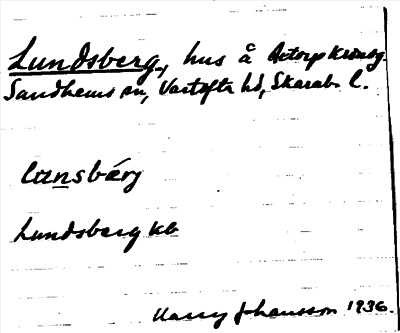 Lundsberg, hus å Åstorp Kronog.
Sandhems sn, Vartofta hd, Skarab. l.
lunsbärj
Lundsberg kb
Harry Johansson 1936.